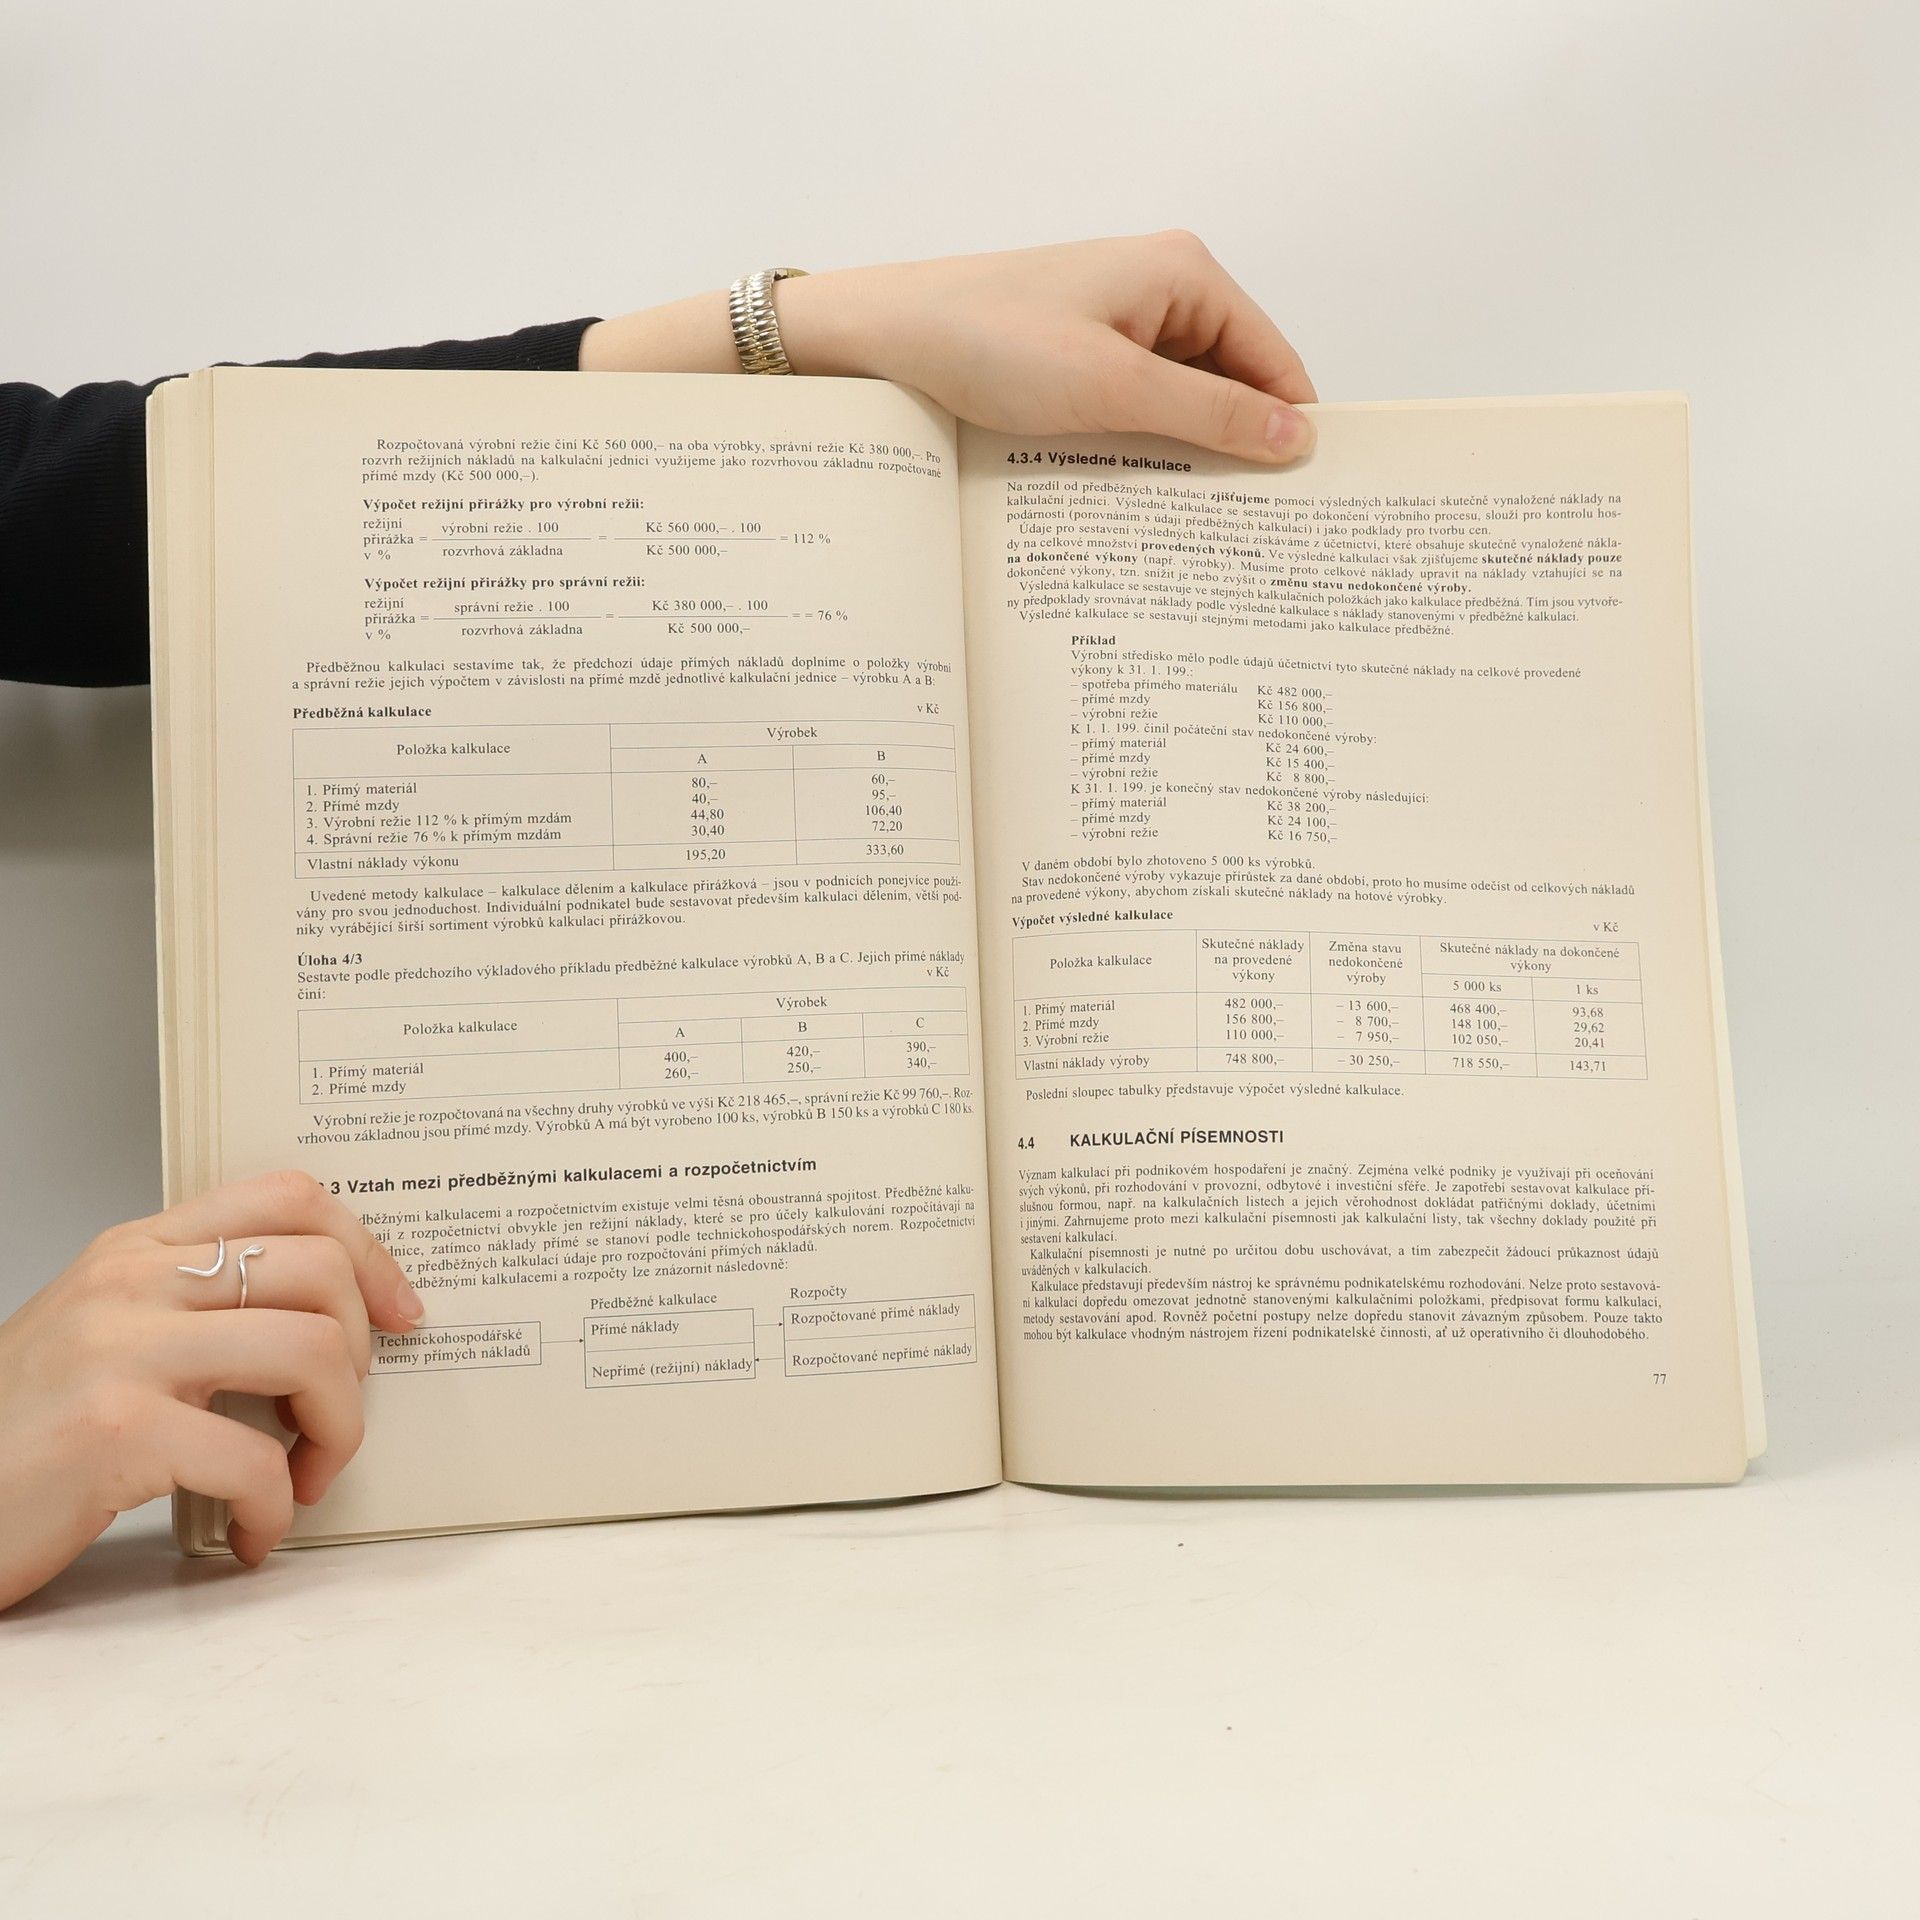 Rozpočtovaná výrobní režie činí Kč 560 000,– na oba výrobky, správní režie Kč 380 000,–. Pro
rozvrh režijních nákladů na kalkulační jednici využijeme jako rozvrhovou základnu rozpočtované
přímé mzdy (Kč 500 000,–).
Výpočet režijní přirážky pro výrobní režii:
režijní
přirážka = výrobní režie . 100 / rozvrhová základna = Kč 560 000,– . 100 / Kč 500 000,– = 112 %
v %
Výpočet režijní přirážky pro správní režii:
režijní
přirážka = správní režie . 100 / rozvrhová základna = Kč 380 000,– . 100 / Kč 500 000,– = = 76 %
v %
Předběžnou kalkulaci sestavíme tak, že předchozí údaje přímých nákladů doplníme o položky výrobní
a správní režie jejich výpočtem v závislosti na přímé mzdě jednotlivé kalkulační jednice – výrobku A a B:
Předběžná kalkulace v Kč
Položka kalkulace Výrobek
A B
1. Přímý materiál 80,– 60,–
2. Přímé mzdy 40,– 95,–
3. Výrobní režie 112 % k přímým mzdám 44,80 106,40
4. Správní režie 76 % k přímým mzdám 30,40 72,20
Vlastní náklady výkonu 195,20 333,60
Uvedené metody kalkulace – kalkulace dělením a kalkulace přirážková – jsou v podnicích ponejvíce použí-
vány pro svou jednoduchost. Individuální podnikatel bude sestavovat především kalkulaci dělením, větší pod-
niky vyrábějící širší sortiment výrobků kalkulaci přirážkovou.
Úloha 4/3
Sestavte podle předchozího výkladového příkladu předběžné kalkulace výrobků A, B a C. Jejich přímé náklady
činí: v Kč
Položka kalkulace Výrobek
A B C
1. Přímý materiál 400,– 420,– 390,–
2. Přímé mzdy 260,– 250,– 340,–
Výrobní režie je rozpočtovaná na všechny druhy výrobků ve výši Kč 218 465,–, správní režie Kč 99 760,–. Roz-
vrhovou základnou jsou přímé mzdy. Výrobků A má být vyrobeno 100 ks, výrobků B 150 ks a výrobků C 180 ks.
3 Vztah mezi předběžnými kalkulacemi a rozpočetnictvím
běžnými kalkulacemi a rozpočetnictvím existuje velmi těsná oboustranná spojitost. Předběžné kalku-
ají z rozpočetnictví obvykle jen režijní náklady, které se pro účely kalkulování rozpočítávají na
dnice, zatímco náklady přímé se stanoví podle technickohospodářských norem. Rozpočetnictví
z předběžných kalkulací údaje pro rozpočtování přímých nákladů.
edběžnými kalkulacemi a rozpočty lze znázornit následovně:
Předběžné kalkulace Rozpočty
Technickohospodářské normy přímých nákladů
Přímé náklady Rozpočtované přímé náklady
Nepřímé (režijní) náklady Rozpočtované nepřímé náklady
4.3.4 Výsledné kalkulace
Na rozdíl od předběžných kalkulací zjišťujeme pomocí výsledných kalkulací skutečně vynaložené náklady na
kalkulační jednici. Výsledné kalkulace se sestavují po dokončení výrobního procesu, slouží pro kontrolu hos-
podárnosti (porovnáním s údaji předběžných kalkulací) i jako podklady pro tvorbu cen.
Údaje pro sestavení výsledných kalkulací získáváme z účetnictví, které obsahuje skutečně vynaložené nákla-
dy na celkové množství provedených výkonů. Ve výsledné kalkulaci však zjišťujeme skutečné náklady pouze
na dokončené výkony (např. výrobky). Musíme proto celkové náklady upravit na náklady vztahující se na
dokončené výkony, tzn. snížit je nebo zvýšit o změnu stavu nedokončené výroby.
Výsledná kalkulace se sestavuje ve stejných kalkulačních položkách jako kalkulace předběžná. Tím jsou vytvoře-
ny předpoklady srovnávat náklady podle výsledné kalkulace s náklady stanovenými v předběžné kalkulaci.
Výsledné kalkulace se sestavují stejnými metodami jako kalkulace předběžné.
Příklad
Výrobní středisko mělo podle údajů účetnictví tyto skutečné náklady na celkové provedené
výkony k 31. 1. 199.:
– spotřeba přímého materiálu Kč 482 000,–
– přímé mzdy Kč 156 800,–
– výrobní režie Kč 110 000,–
K 1. 1. 199. činil počáteční stav nedokončené výroby:
– přímý materiál Kč 24 600,–
– přímé mzdy Kč 15 400,–
– výrobní režie Kč 8 800,–
K 31. 1. 199. je konečný stav nedokončené výroby následující:
– přímý materiál Kč 38 200,–
– přímé mzdy Kč 24 100,–
– výrobní režie Kč 16 750,–
V daném období bylo zhotoveno 5 000 ks výrobků.
Stav nedokončené výroby vykazuje přírůstek za dané období, proto ho musíme odečíst od celkových nákladů
na provedené výkony, abychom získali skutečné náklady na hotové výrobky.
Výpočet výsledné kalkulace v Kč
Položka kalkulace Skutečné náklady na provedené výkony Změna stavu nedokončené výroby Skutečné náklady na dokončené výkony
5 000 ks 1 ks
1. Přímý materiál 482 000,– – 13 600,– 468 400,– 93,68
2. Přímé mzdy 156 800,– – 8 700,– 148 100,– 29,62
3. Výrobní režie 110 000,– – 7 950,– 102 050,– 20,41
Vlastní náklady výroby 748 800,– – 30 250,– 718 550,– 143,71
Poslední sloupec tabulky představuje výpočet výsledné kalkulace.
4.4 KALKULAČNÍ PÍSEMNOSTI
Význam kalkulací při podnikovém hospodaření je značný. Zejména velké podniky je využívají při oceňování
svých výkonů, při rozhodování v provozní, odbytové i investiční sféře. Je zapotřebí sestavovat kalkulace pří-
slušnou formou, např. na kalkulačních listech a jejich věrohodnost dokládat patřičnými doklady, účetními
i jinými. Zahrnujeme proto mezi kalkulační písemnosti jak kalkulační listy, tak všechny doklady použité při
sestavení kalkulací.
Kalkulační písemnosti je nutné po určitou dobu uschovávat, a tím zabezpečit žádoucí průkaznost údajů
uváděných v kalkulacích.
Kalkulace představují především nástroj ke správnému podnikatelskému rozhodování. Nelze proto sestavová-
ní kalkulací dopředu omezovat jednotně stanovenými kalkulačními položkami, předpisovat formu kalkulací,
metody sestavování apod. Rovněž početní postupy nelze dopředu stanovit závazným způsobem. Pouze takto
mohou být kalkulace vhodným nástrojem řízení podnikatelské činnosti, ať už operativního či dlouhodobého.
77